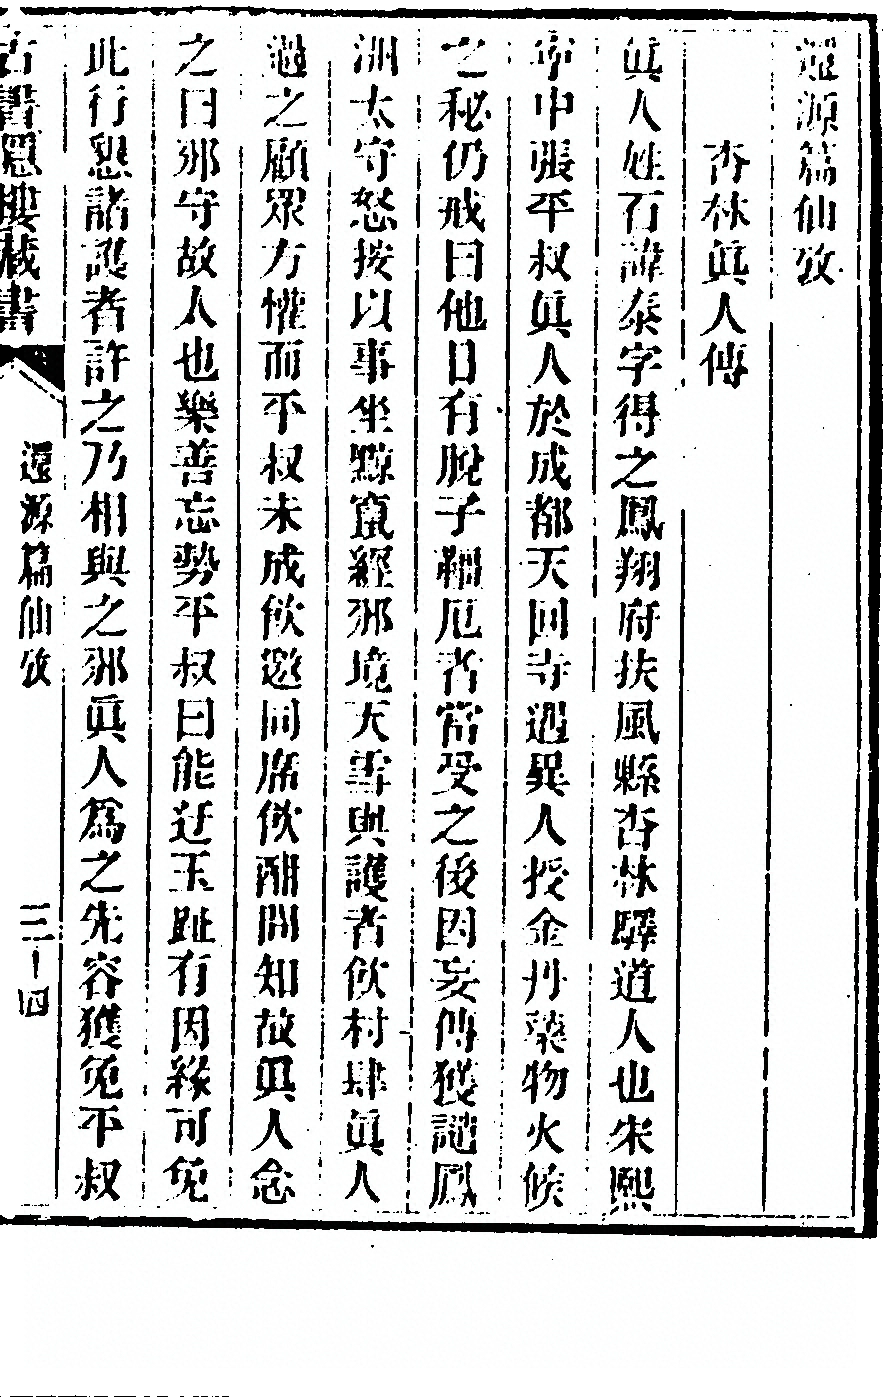 還源篇仙攷
杏林眞人傳
眞人姓石諱泰字得之鳳翔府扶風縣杏林驛道人也宋熙
寧中張平叔眞人於成都天回寺遇異人授金丹藥物火候
之秘仍戒曰他日有脫子韁厄者當受之後因妄傳獲譴鳳
洲太守怒按以事坐黥竄經邪境天雪與護者飮村肆眞人
過之顧眾方懽而平叔未成飮邀同席飮酣問知故眞人念
之曰邪守故人也樂善忘勢平叔曰能迂玉趾有因緣可免
此行懇諸護者許之乃相與之邪眞人爲之先容獲免平叔
古書隱樓藏書
還源篇仙攷
三十四